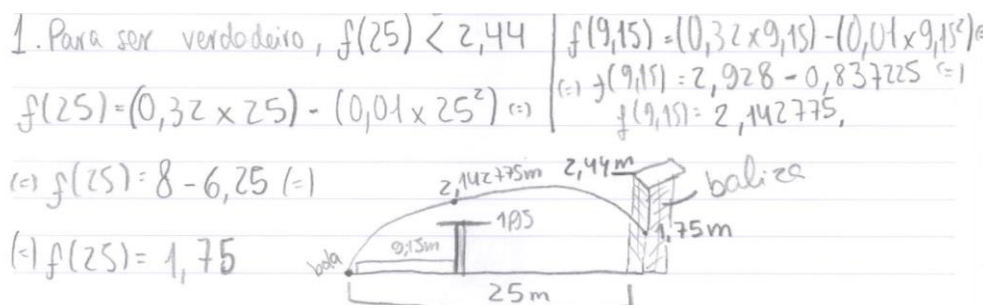 1. Para ser verdadeiro, f(25) < 2,44
f(25)=(0,32 × 25) - (0,01 × 25²) (=)
(=) f(25)= 8 - 6,25 (=)
(=) f(25)= 1,75
f(9,15) = (0,32×9,15) - (0,01×9,15²) (=
(=) f(9,15) = 2,928 - 0,837225 (=)
f(9,15)= 2,142775,
2,142775m
2,44m
baliza
1,75m
9,15m
bola
25m